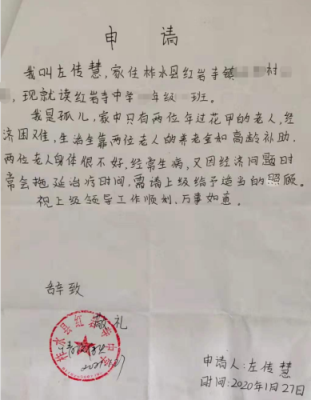 申请
我叫左传慧,家住柞水县红岩寺镇 村
,现就读红岩寺中学 年级 班。
我是孤儿,家中只有两位年过花甲的老人,经
济困难,生活全靠两位老人的养老金如高龄补助,
两位老人身体很不好,经常生病,又因经济问题时
常会拖延治疗时间,需请上级给予适当的照顾。
祝上级领导工作顺利,万事如意。
致
敬礼
柞水县红
申请人:左传慧
时间:2020年1月27日